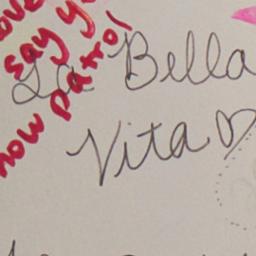 love
say y
now patrol
La Bella
Vita ♡